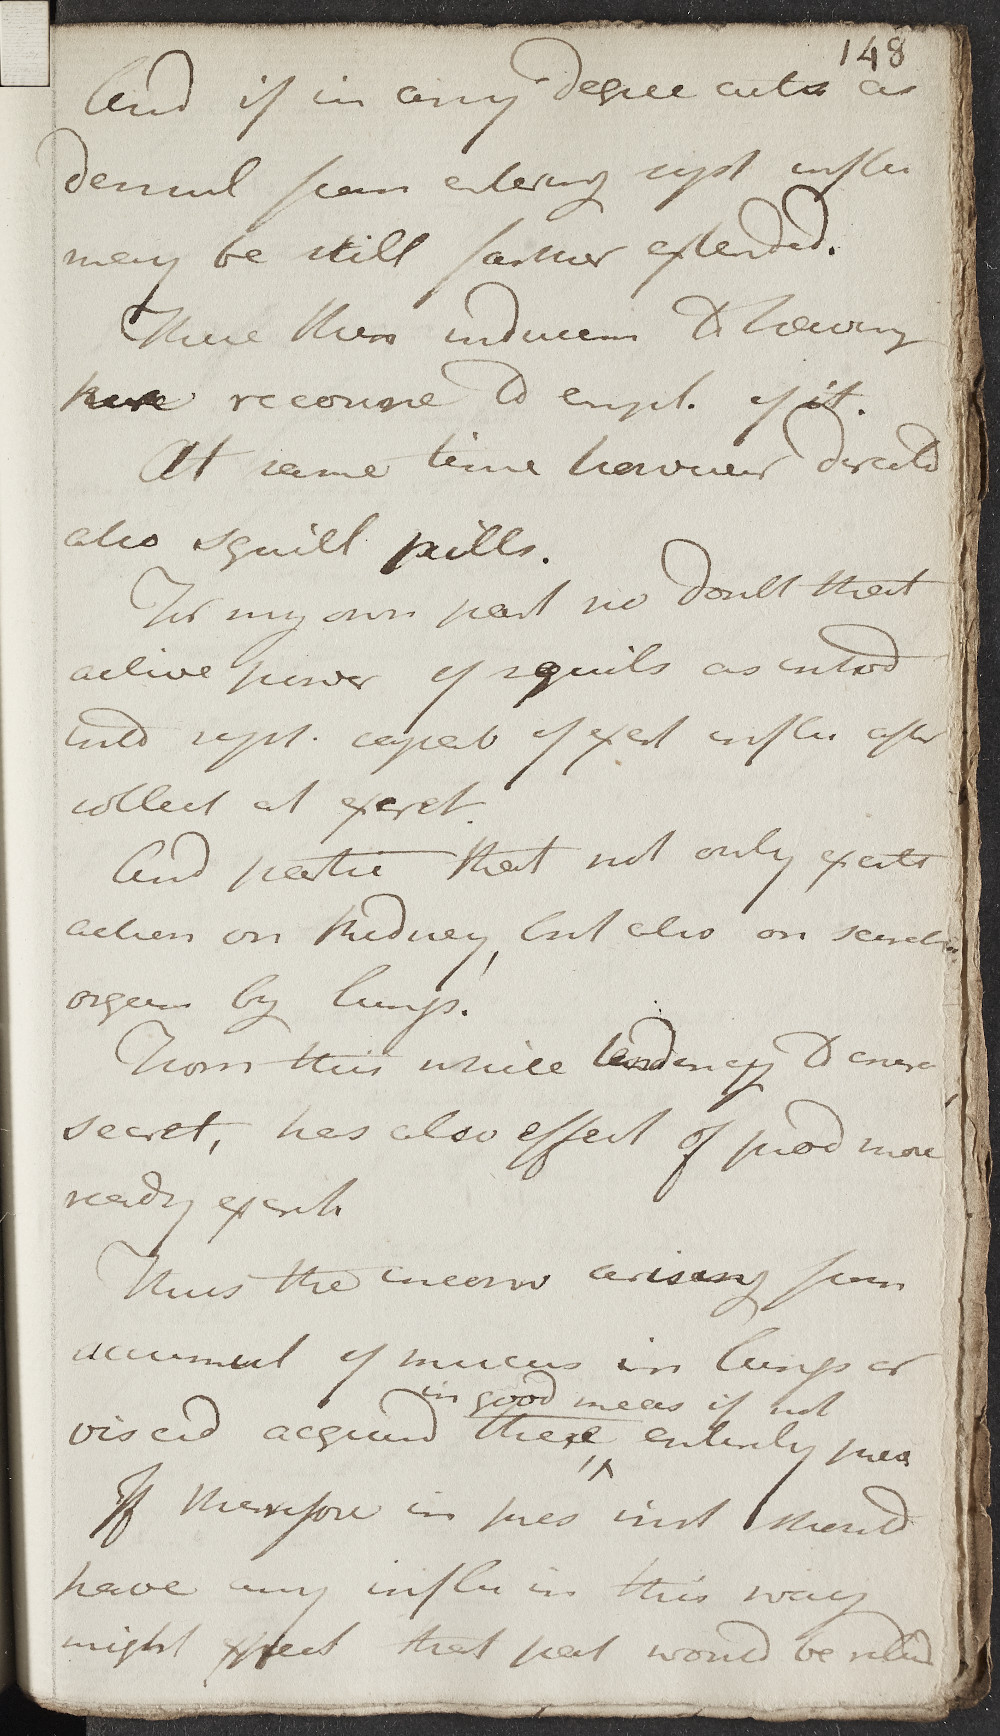 148
And if in any degree acts as
demul from entering syst influ
may be still farther extended.
These then inducem to having
here recourse to empl. of it.
At same time however directd
also squill pills.
For my own part no doubt that
active power of squils as introd
into syst. capab of exert influ after
collect at excret.
And partic that not only exerts
action on kidney, but also on secreting
organs by lungs.
From this while tendency to
secret, has also effect of prod more
ready excret.
Thus the inconv arising from
accumul of mucus in lungs or
in good meas if not
viscid acquird there entirely prev
If therefore in pres inst should
have any influ in this way
might expect that pat would be relievd